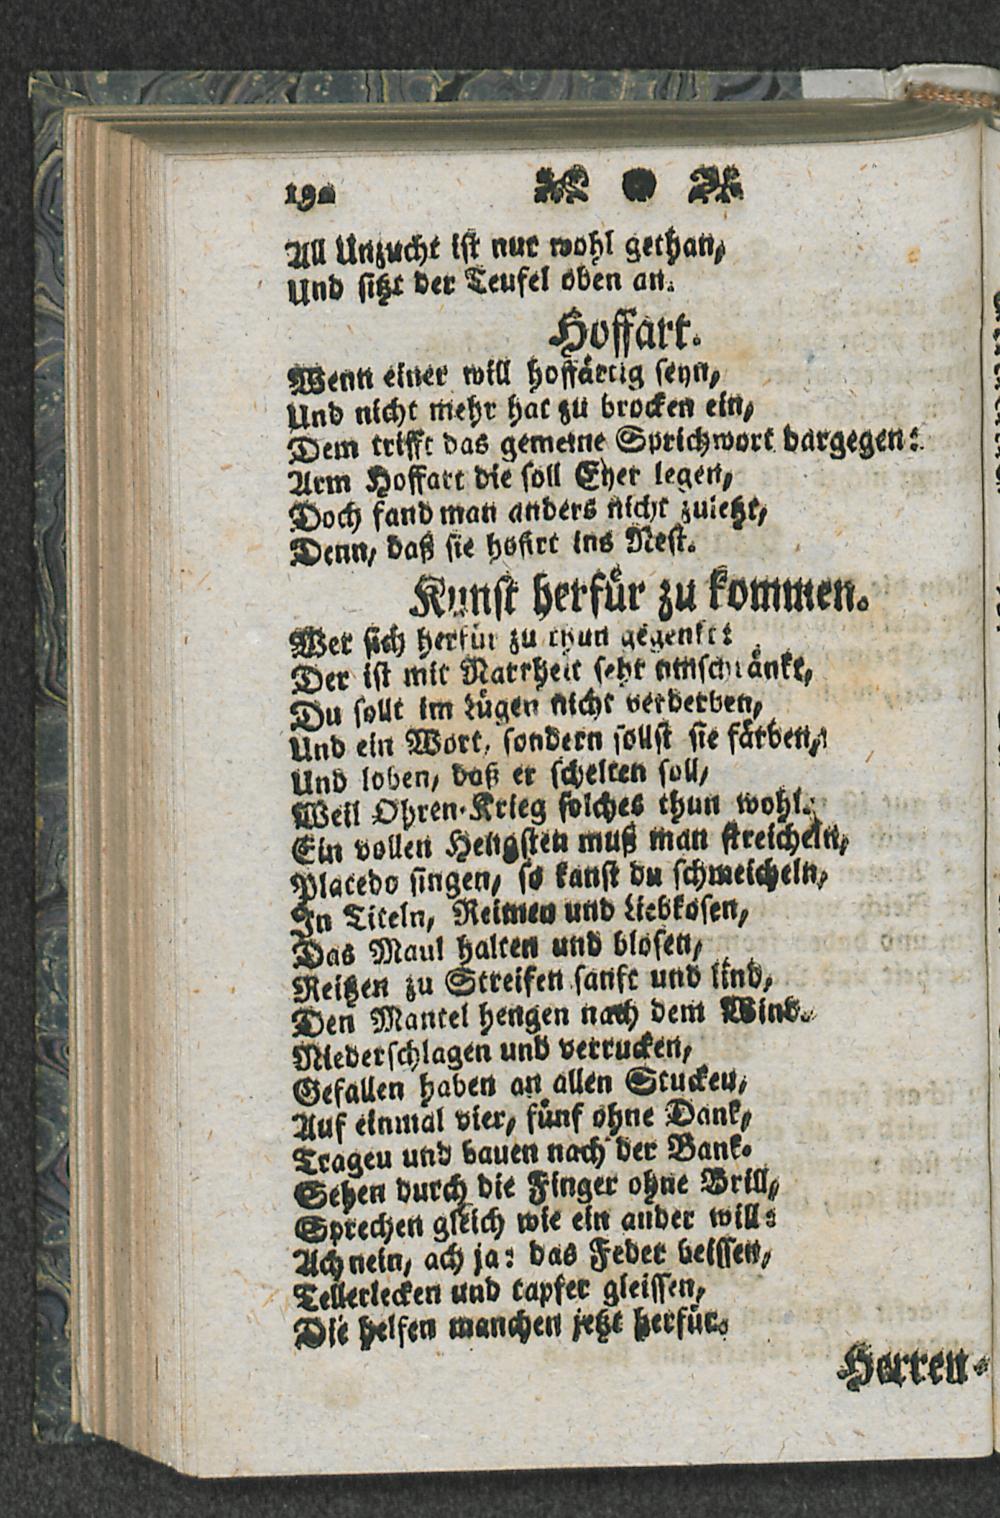 192
All Unzucht ist nur wohl gethan,
Und sitzt der Teufel oben an.
Hoffart.
Wenn einer will hoffärtig seyn,
Und nicht mehr hat zu brocken ein,
Dem trifft das gemeine Sprichwort dargegen:
Arm Hoffart die soll Eyer legen,
Doch fand man anders nicht zuletzt,
Denn, daß sie hofirt ins Nest.
Kunst herfür zu kommen.
Wer sich herfür zu thun gegenkt:
Der ist mit Narrheit sehr umschränkt,
Du sollt im Lügen nicht verderben,
Und ein Wort, sondern sollst sie färben,
Und loben, daß er schelten soll,
Weil Ohren-Krieg solches thun wohl.
Ein vollen Hengsten muß man streicheln,
Placebo singen, so kanst du schmeicheln,
In Titeln, Reimen und Liebkosen,
Das Maul halten und blosen,
Reitzen zu Streifen sanft und lind,
Den Mantel hengen nach dem Wind.
Niederschlagen und verrucken,
Gefallen haben an allen Stucken,
Auf einmal vier, fünf ohne Dank,
Trageu und bauen nach der Bank.
Sehen durch die Finger ohne Brill,
Sprechen gleich wie ein ander will:
Ach nein, ach ja: das Feder beissen,
Tellerlecken und tapfer gleissen,
Die helfen manchen jetzt herfür.
Herren-